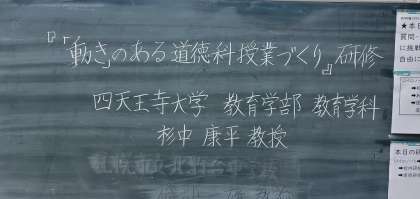 『「動き」のある道徳科授業づくり』研修
四天王寺大学 教育学部 教育学科
杉中 康平 教授
★本日
質問…
に挑戦
自由に
本日の研